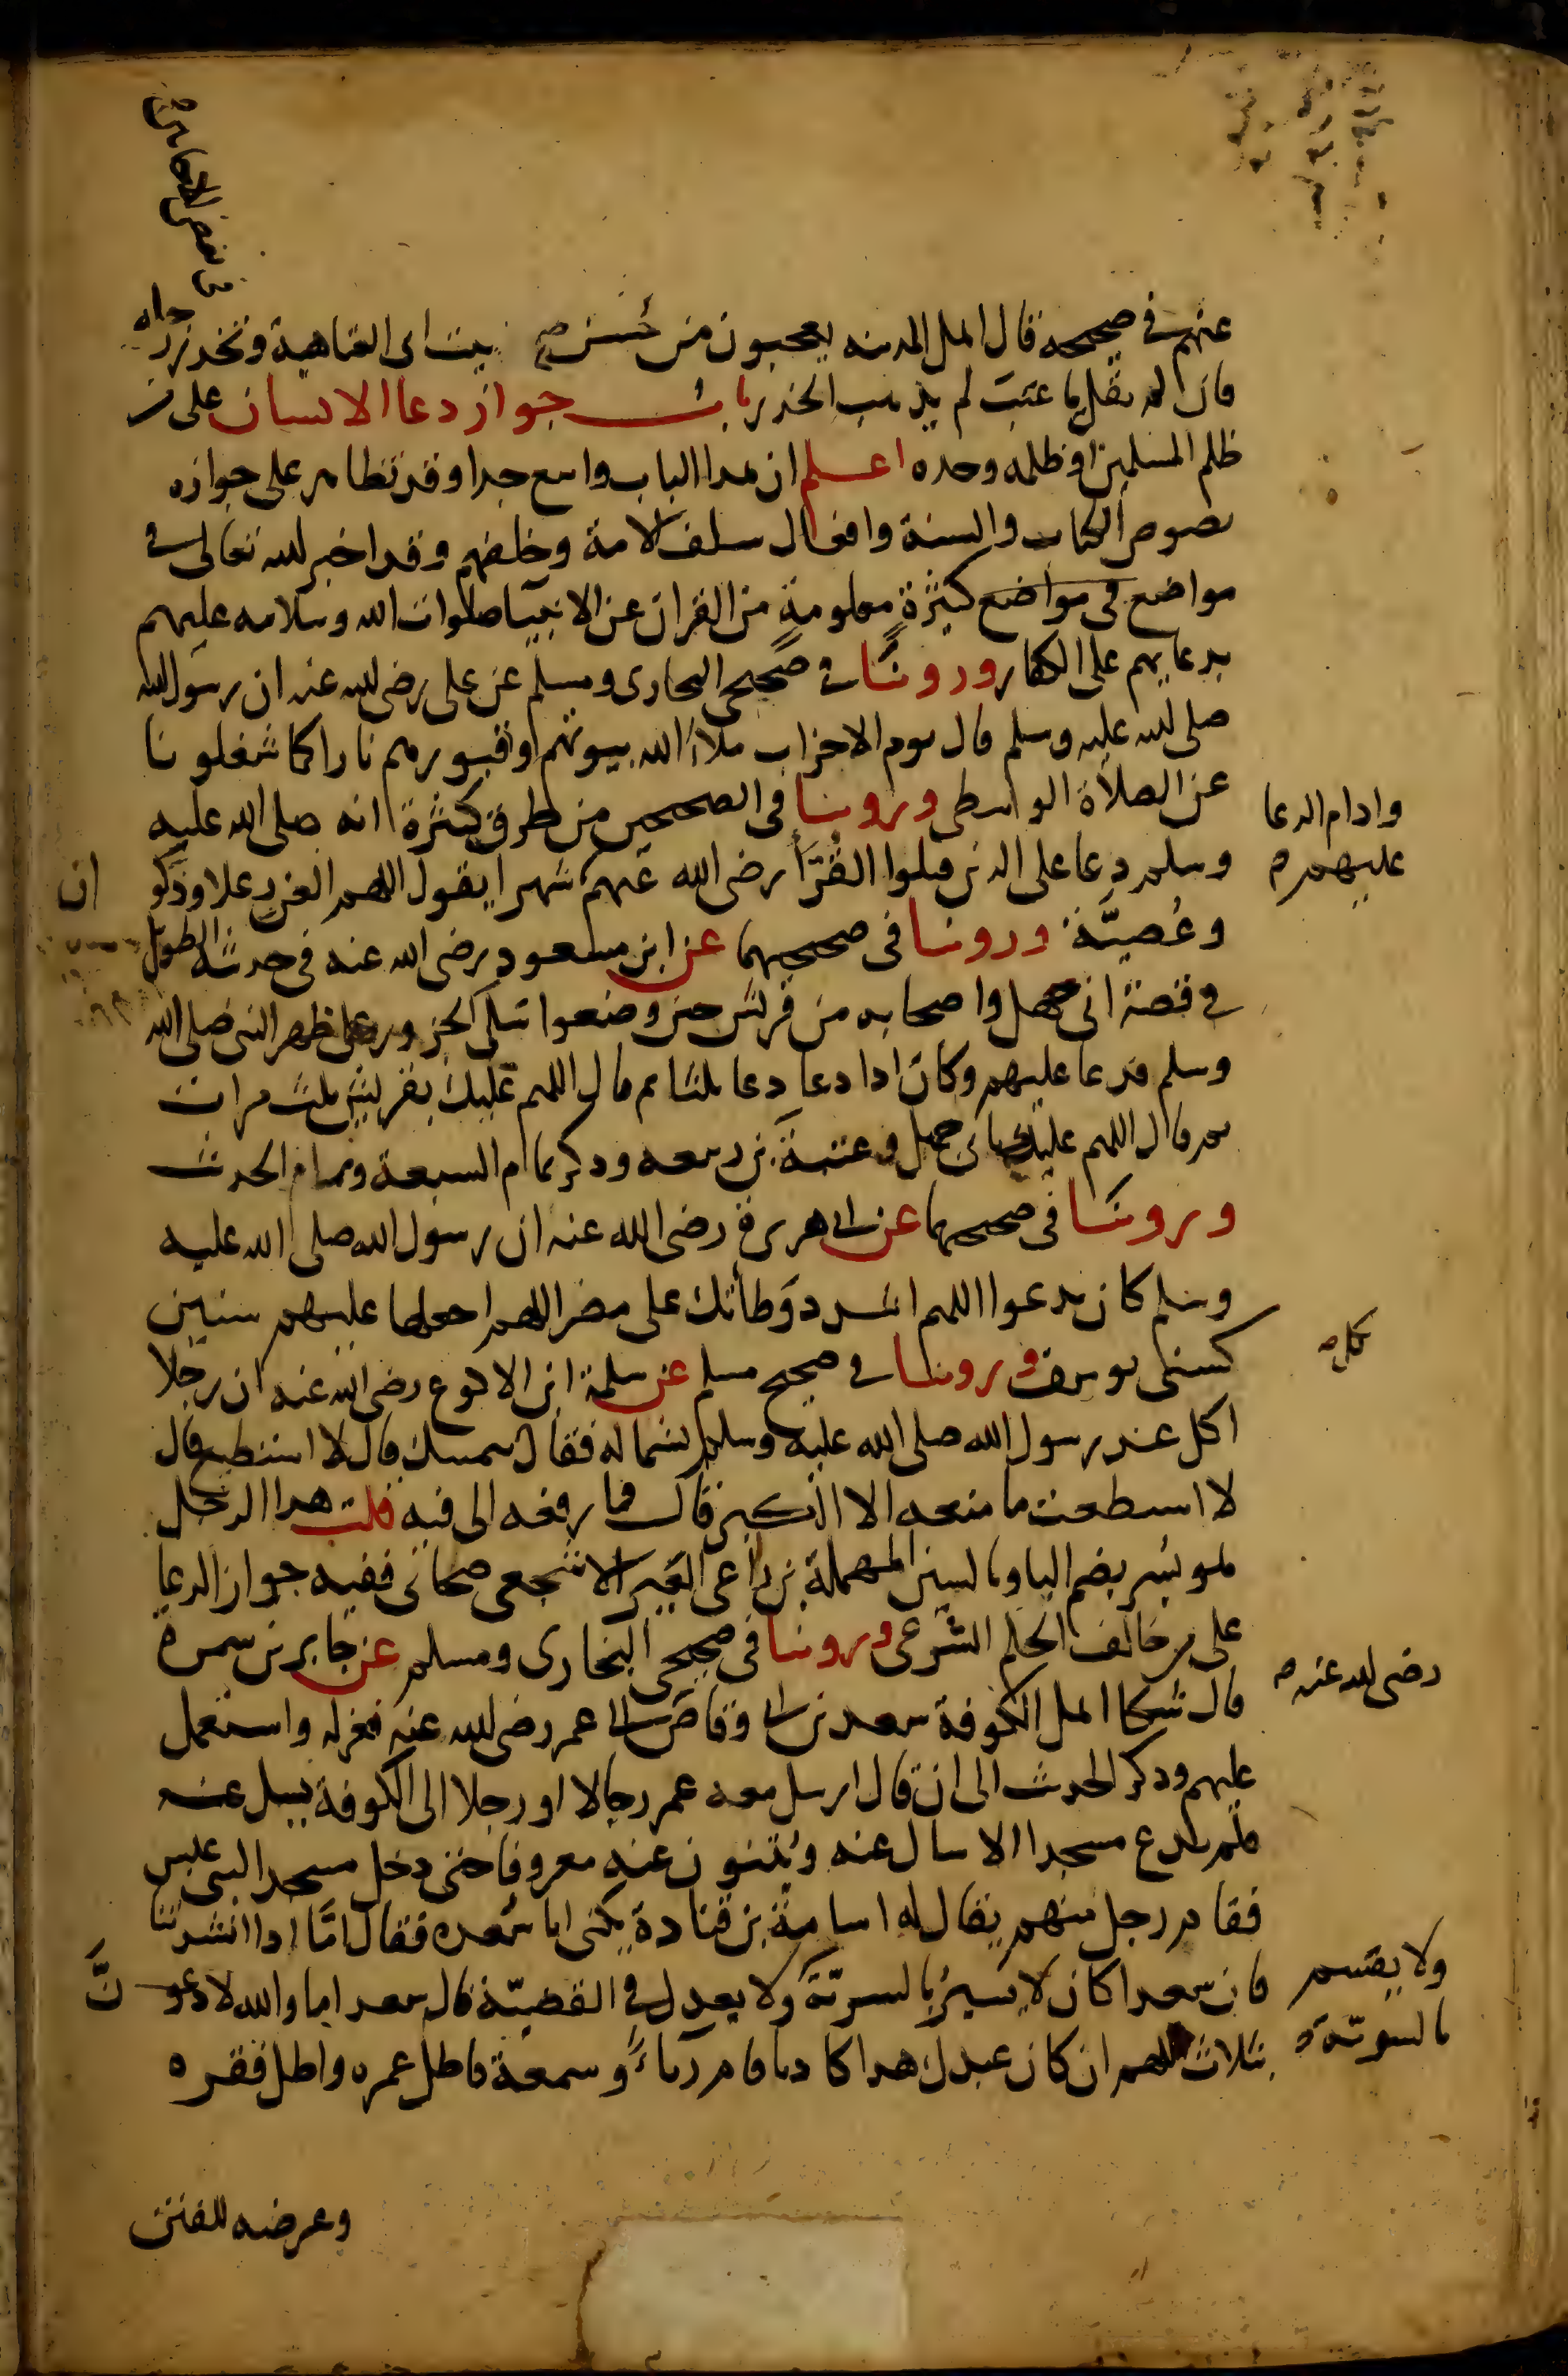 في بعض الاحايين
عنهم في صحيحه قال اهل المدينه يعجبون من حسن بيت ابى العتاهية وتخدر رجله
فان لم يقل يا عتب لم يذهب الخدر باب جواز دعا الانسان على من
ظلم المسلمين او ظلمه وحده اعلم ان هذا الباب واسع جدا وقد تظاهر على جوازه
نصوص الكتاب والسنة وافعال سلف الامة وخلفهم وقد اخبر الله تعالى في
مواضع في مواضع كثيرة معلومة من القران عن الانبيا صلوات الله وسلامه عليهم
بدعايهم على الكفار وروينا في صحيحي البخارى ومسلم عن على رضى الله عنه ان رسول الله
صلى الله عليه وسلم قال يوم الاحزاب ملأ الله بيوتهم وقبورهم نارا كما شغلونا
عن الصلاة الوسطى وروينا في الصحيحين من طرق كثيرة انه صلى الله عليه
وسلم دعا على الذين قتلوا القرّا رضى الله عنهم شهرا يقول اللهم العن رعلا وذكوان
وادام الدعا
عليهم
وعُصيّة وروينا في صحيحيهما عن ابن مسعود رضى الله عنه في حديثه الطويل
في قصة ابى جهل واصحابه من قريش حين وضعوا سلى الجزور على ظهر النبى صلى الله
وسلم فدعا عليهم وكان اذا دعا دعا ثلثا ثم قال اللهم عليك بقريش ثلث مرات
ثم قال اللهم عليك بابى جهل وعتبة بن ربيعه وذكر تمام السبعة وتمام الحديث
وروينا في صحيحيهما عن ابى هريرة رضى الله عنه ان رسول الله صلى الله عليه
وسلم كان يدعوا اللهم اشدد وطأتك على مضر اللهم اجعلها عليهم سنين
كسنى يوسف وروينا في صحيح مسلم عن سلمة ابن الاكوع رضى الله عنه ان رجلا
اكل عند رسول الله صلى الله عليه وسلم بشماله فقال كل بيمينك قال لا استطيع قال
لا استطعت ما منعه الا الكبر قال فما رفعه الى فيه قلت هذا الرجل
هو بُسر بضم البا وبالسين المهملة بن راعى العَير الاشجعى صحابى ففيه جواز الدعا
على من خالف الحكم الشرعى وروينا في صحيحي البخارى ومسلم عن جابر بن سمرة
رضى الله عنه
قال شكا اهل الكوفة سعد بن ابى وقاص الى عمر رضى الله عنه فعزله واستعمل
عليهم وذكر الحديث الى ان قال ارسل معه عمر رجالا او رجلا الى الكوفة يسل عنه
فلم يدع مسجدا الا سال عنه ويثنون عنه معروفا حتى دخل مسجد البنى عبس
فقام رجل منهم يقال له اسامة بن قتادة يكنى ابا سعده فقال امّا اذا انشدتنا
فان سعدا كان لا يسير بالسريّة ولا يعدل في القضيّة قال سعد اما والله لادعونَّ
ولا يقسم
بالسويّة
بثلاث اللهم ان كان عبدك هذا كاذبا قام رياءً وسمعة فاطل عمره واطل فقره
وعرضه للفتن